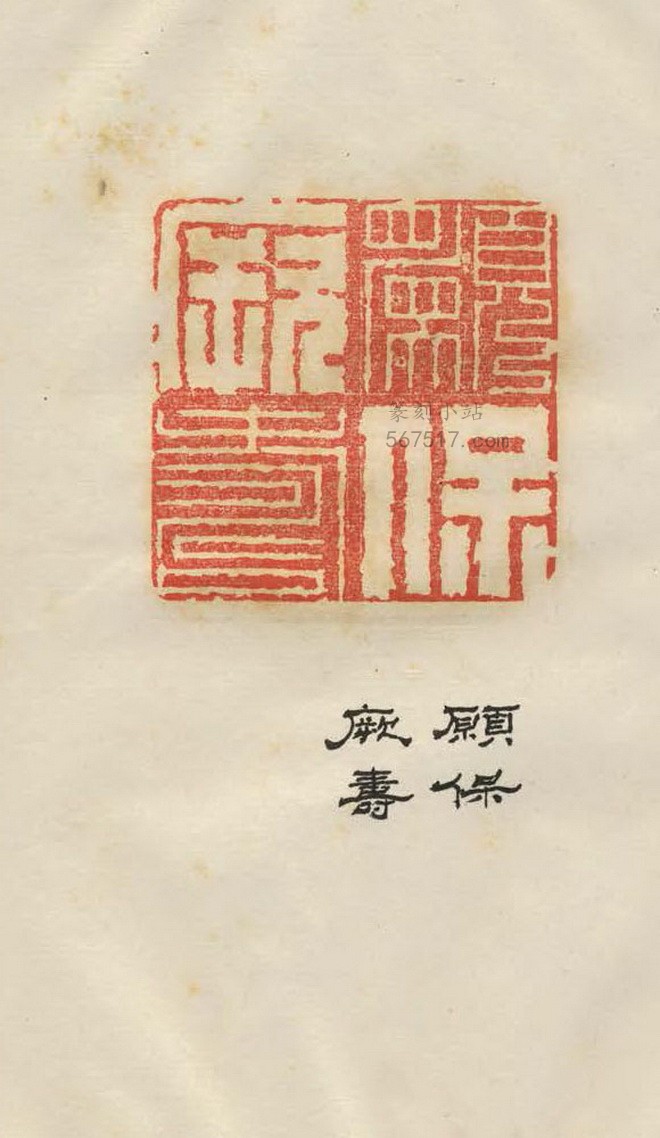 願保
厥壽
篆刻小站
567517.com
願保
厥壽